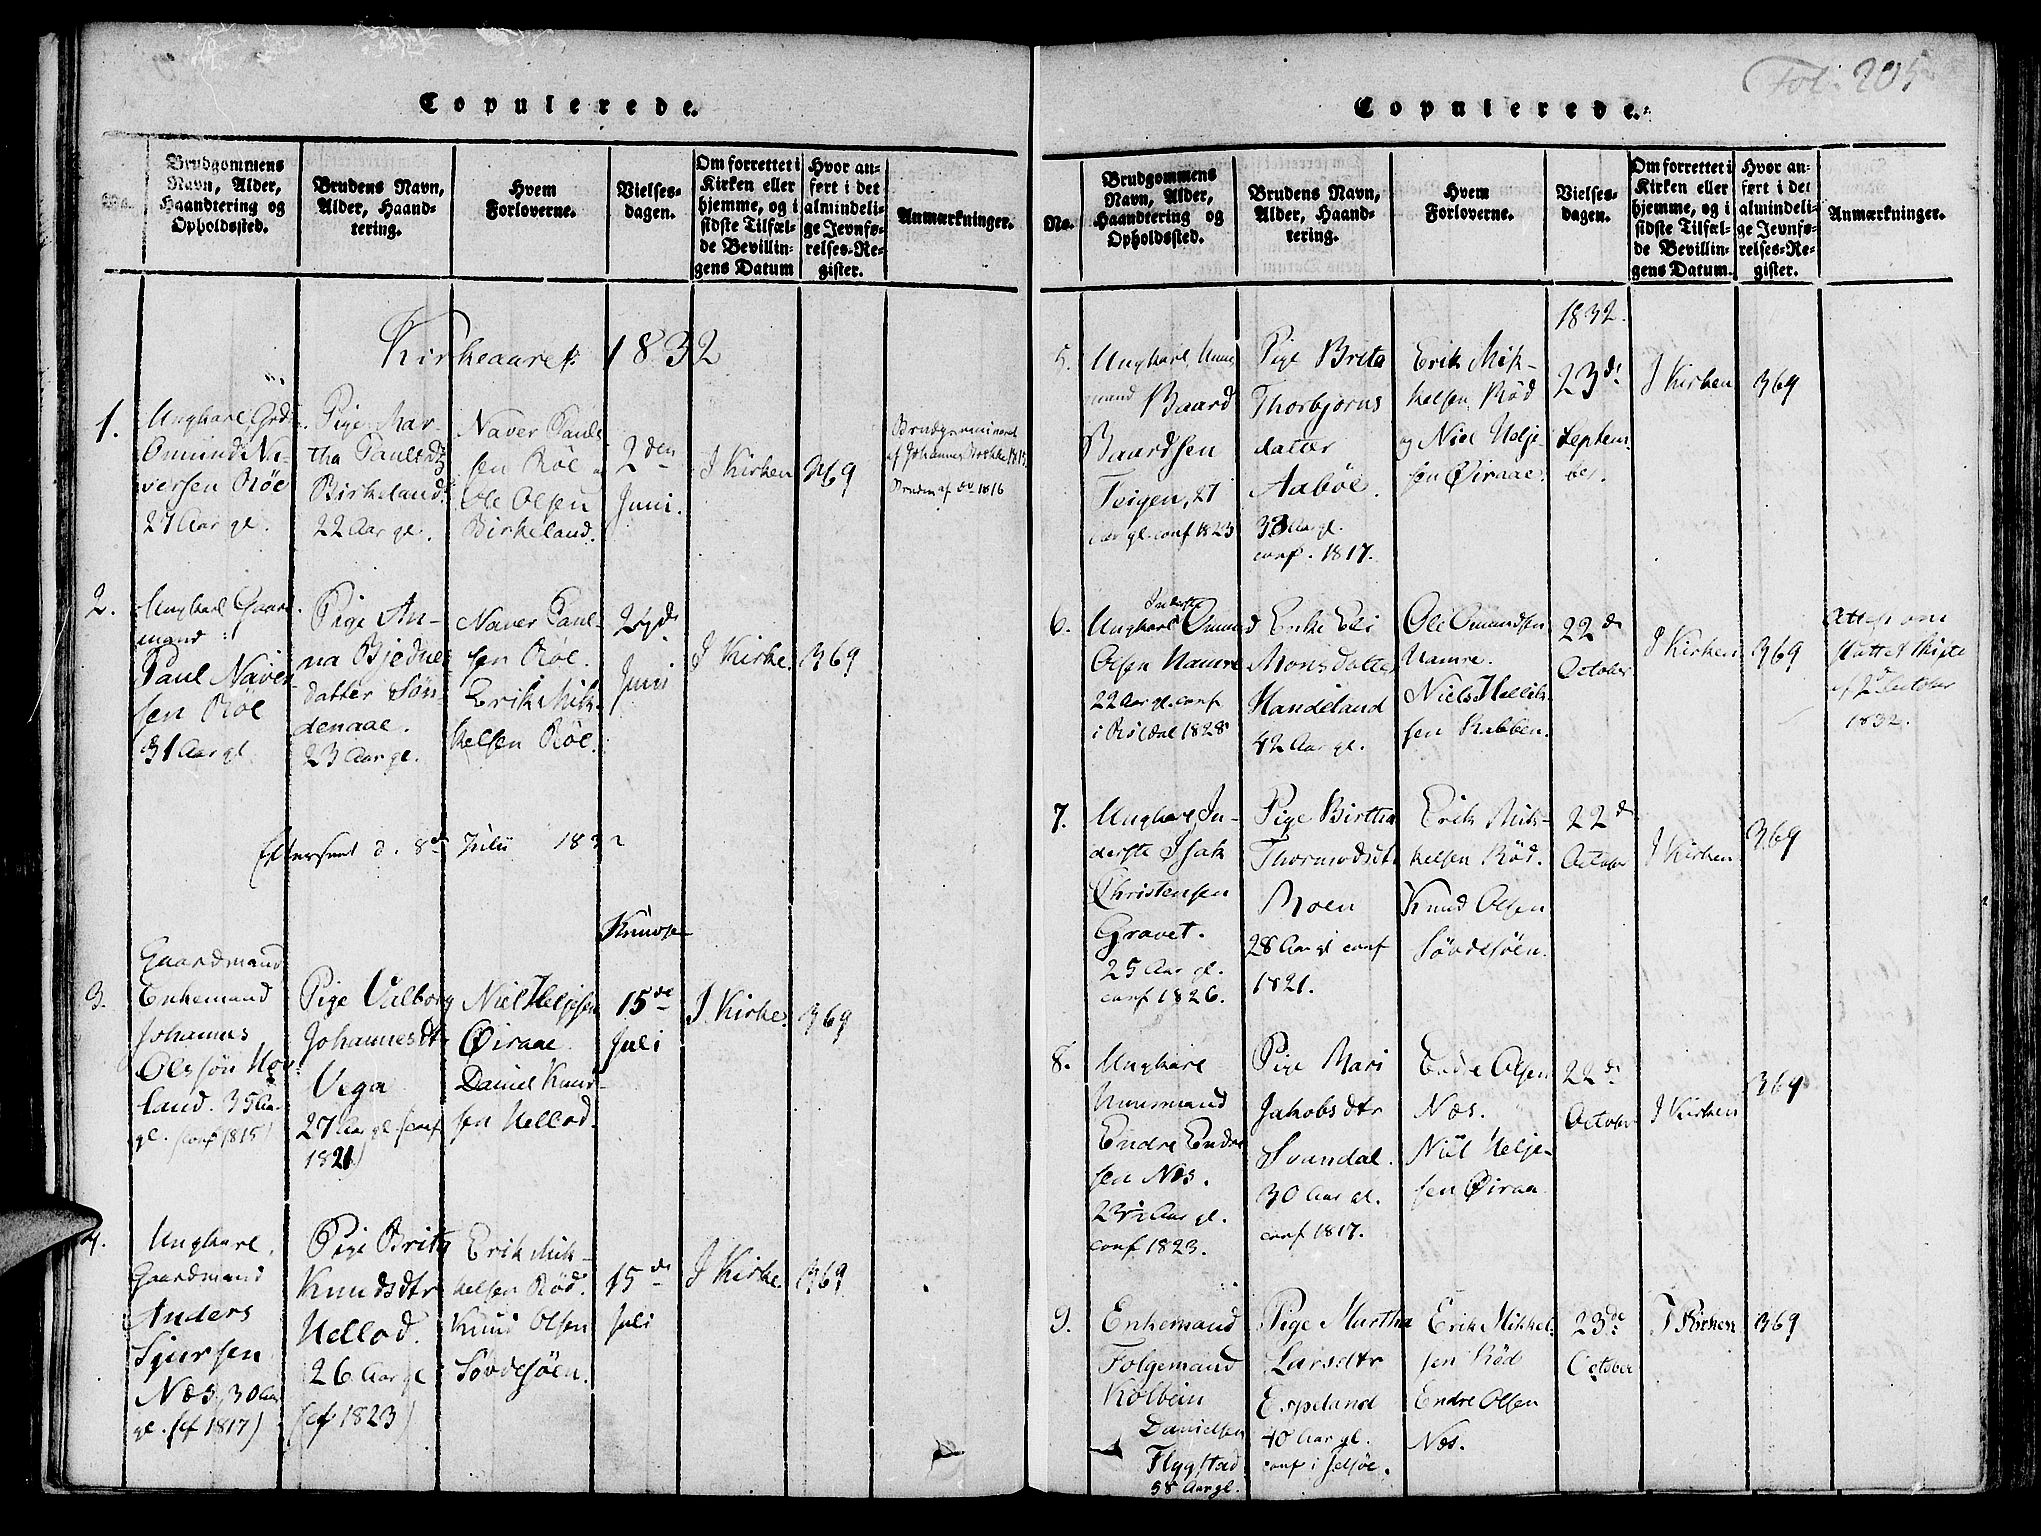 Fol. 205
Copulerede.
No.
Brudgommens
Navn, Alder,
Haandtering og
Opholdssted.
Brudens Navn,
Alder, Haand-
tering.
Hvem
Forloverne.
Vielses-
dagen.
Om forrettet i
Kirken eller
hjemme, og i
sidste Tilfæl-
de Bevillin-
gens Datum
Hvor an-
ført i det
almindeli-
ge Jevnfø-
relses-Re-
gister.
Anmærkninger.
Kirkeaaret 1832
1.
Ungkarl Grdm.
Omund Na-
versen Röe
27 Aar gl.
Pige Mar-
tha Paulsdtr
Birkeland
22 Aar gl.
Naver Pauls
sen Röe
Ole Olsen
Birkeland.
2den
Juni.
I Kirken
369
Brudgommen
af Johannes 1815
Bruden af do 1816
2.
Ungkarl Gaard
mand
Paul Naver-
sen Röe
31 Aar gl.
Pige An-
na Bjedne
datter Søn
denaae.
23 Aar gl.
Naver Paul-
sen Röe.
Erik Mik-
kelsen Röe.
24de
Juni
I Kirke.
369
Efterseet d. 8de Julii 1832
3.
Gaardmand
Enkemand
Johannes
Olssön Hov-
land. 35 Aar
gl. (conf 1815)
Pige Valborg
Johannesdtr
Vega
27 Aar gl (conf
1821)
Niel Heljesen
Øiraae.
Daniel Knud-
sen Hellod.
15de
Juli
I Kirke.
369
4.
Ungkare.
Gaardmand
Anders
Sjursen
Næs, 30 Aar
gl. (cf 1817)
Pige Brita
Knudsdtr
Hellod.
26 Aar gl
(cf 1823)
Erik Mik-
kelsen Röd.
Knud Olsen
Sövdesöen.
15de
Juli
I Kirke.
369
Copulerede.
No.
Brudgommens
Navn, Alder,
Haandtering og
Opholdssted.
Brudens Navn,
Alder, Haand-
tering.
Hvem
Forloverne.
Vielses-
dagen.
Om forrettet i
Kirken eller
hjemme, og i
sidste Tilfæl-
de Bevillin-
gens Datum.
Hvor an-
ført i det
almindeli-
ge Jevnfø-
relses-Re-
gister.
Anmærkninger.
1832.
5.
Ungkarl Huus
mand Baard
Baardsen
Teigen, 27
aar gl. conf 1823
Pige Brita
Thorbjørns
datter
Aaböe.
33 Aar gl.
conf. 1817.
Erik Mik-
kelsen Röd
og Niel Helje-
sen Øiraae.
23de
Septem
ber.
I Kirken
369
6.
Inderste
Ungkarl Omund
Olsen Hamre
22 Aar gl. conf
i Röldal 1828
Enke Eli
Monsdatter
Handeland
42 Aar gl.
Ole Omundsen
Hamre.
Niels Hellik-
sen Rabben.
22de
October
I Kirken
369
Attest om
Skifte
af 2 October
1832.
7.
Ungkare In-
derste Isak
Christensen
Gravet.
25 Aar gl.
conf 1826.
Pige Birtha
Thormodsdtr
Moen
28 Aar gl conf
1821.
Erik Mik-
kelsen Röd.
Knud Olsen
Sövdesöen.
22de
October
I Kirken
369
8.
Ungkare
Huusmand
Endre Endre
sen Næs.
23½ Aar gl.
conf 1823.
Pige Mari
Jakobsdtr
Svandal.
30 Aar gl.
conf 1817.
Endre Olsen
Næs.
Niel Helje-
sen Øiraa
22de
October
I Kirken
369
9.
Enkemand
Folgemand
Kolbein
Danielsen
Flygstad
58 Aar gl.
Pige Martha
Larsdtr
Espeland
40 Aar gl.
conf i Jelsöe.
Erik Mikkel-
sen Röd
Endre Olsen
Næs.
23de
October
I Kirken
369